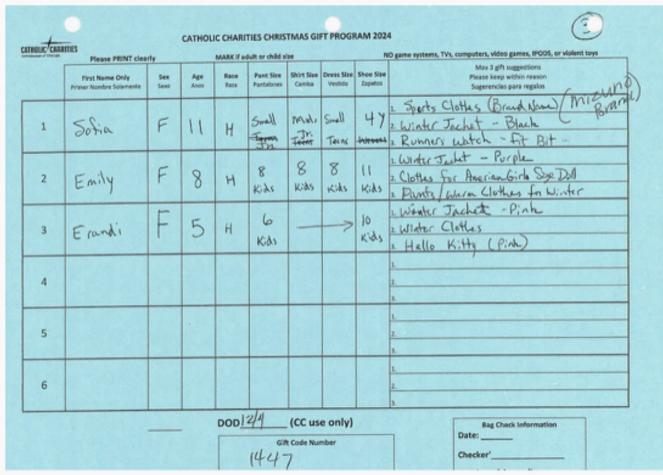 3
CATHOLIC CHARITIES
CATHOLIC CHARITIES CHRISTMAS GIFT PROGRAM 2024
Please PRINT clearly MARK if adult or child size NO game systems, TVs, computers, video games, IPODS, or violent toys
First Name Only Sex Age Race Pant Size Shirt Size Dress Size Shoe Size Max 3 gift suggestions
Primer Nombre Solamente Sexo Anos Raza Pantalones Camisa Vestido Zapatos Please keep within reason
Sugerencias para regalos
1 Sofia F 11 H Small Jr. Med. Jr. Small Teens 4Y
1. Sports Clothes (Brand Name) (Mizuno Brand)
2. Winter Jacket - Black
3. Runners Watch - Fit Bit -
2 Emily F 8 H 8 Kids 8 Kids 8 Kids 11 Kids
1. Winter Jacket - Purple
2. Clothes for American Girls Size Doll
3. Pants/Warm Clothes for Winter
3 Erandi F 5 H 6 Kids → 10 Kids
1. Winter Jacket - Pink
2. Winter Clothes
3. Hello Kitty (Pink)
4
1.
2.
3.
5
1.
2.
3.
6
1.
2.
3.
DOD 12/4 (CC use only)
Gift Code Number
1447
Bag Check Information
Date:
Checker'